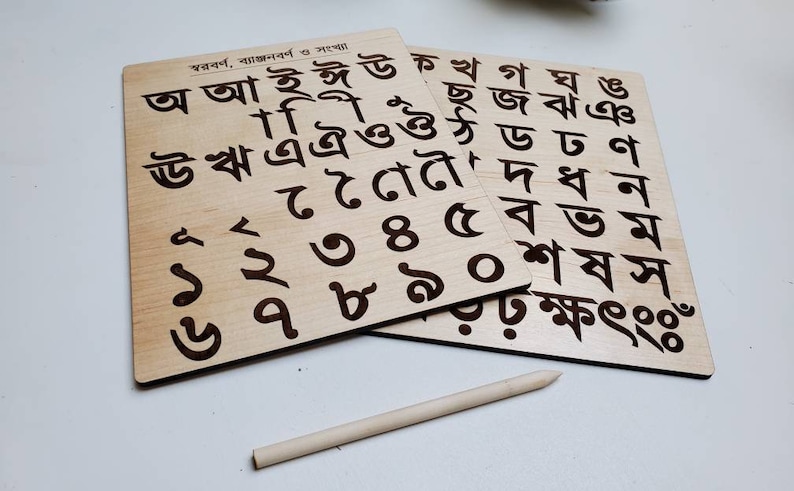 স্বরবর্ণ, ব্যাঞ্জনবর্ণ ও সংখ্যা
অ আ ই ঈ উ
া ি ী ু
ঊ ঋ এ ঐ ও ঔ
ে ৈ ো ৌ
ূ ৃ
১ ২ ৩ ৪ ৫
৬ ৭ ৮ ৯ ০
ক খ গ ঘ ঙ
ছ জ ঝ ঞ
ঠ ড ঢ ণ
দ ধ ন
ব ভ ম
শ ষ স
ড় ঢ় ক্ষ ৎ ং ঃ ঁ